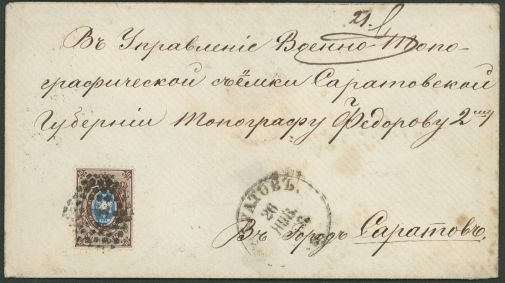 21
Въ Управленіе Военно Топо-
графической съёмки Саратовской
Губерніи Топографу Г. Ѳедорову 2му
САРАТОВЪ.
26
Въ Городъ Саратовъ.